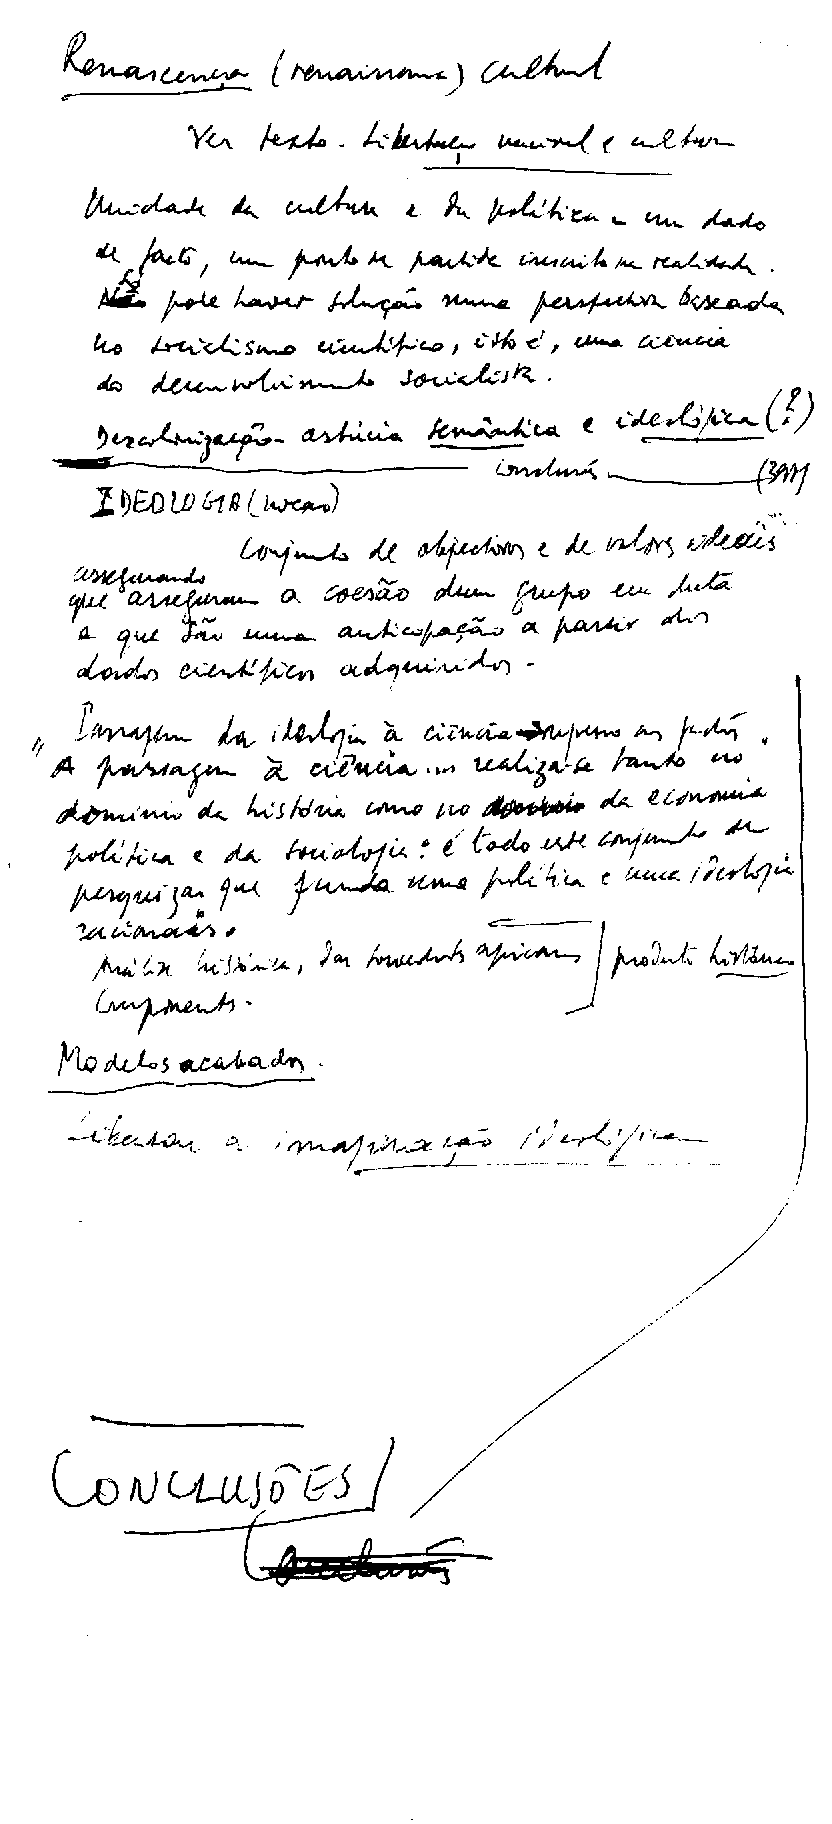 Renascença (renaissance) cultural
Ver texto. Libertação nacional e cultura
Unidade da cultura e da política = um dado
de facto, um ponto de partida inscrito na realidade.
Só pode haver solução numa perspectiva baseada
no socialismo científico, isto é, uma ciência
do desenvolvimento socialista.
Descolonização - astúcia semântica e ideológica (?)
Conclusão
IDEOLOGIA (noção)
Conjunto de objectivos e de valores ideais
assegurando
que asseguram a coesão dum grupo em luta
e que são uma antecipação a partir dos
dados científicos adquiridos.
Passagem da ideologia à ciência
"A passagem à ciência ... realiza-se tanto no
domínio da história como no domínio da economia
política e da sociologia: é todo este conjunto de
pesquizas que funda uma política e uma ideologia
racionais.
Análise histórica, das sociedades africanas
produto histórico
Componentes.
Modelos acabados.
Libertar a imaginação ideológica
CONCLUSÕES